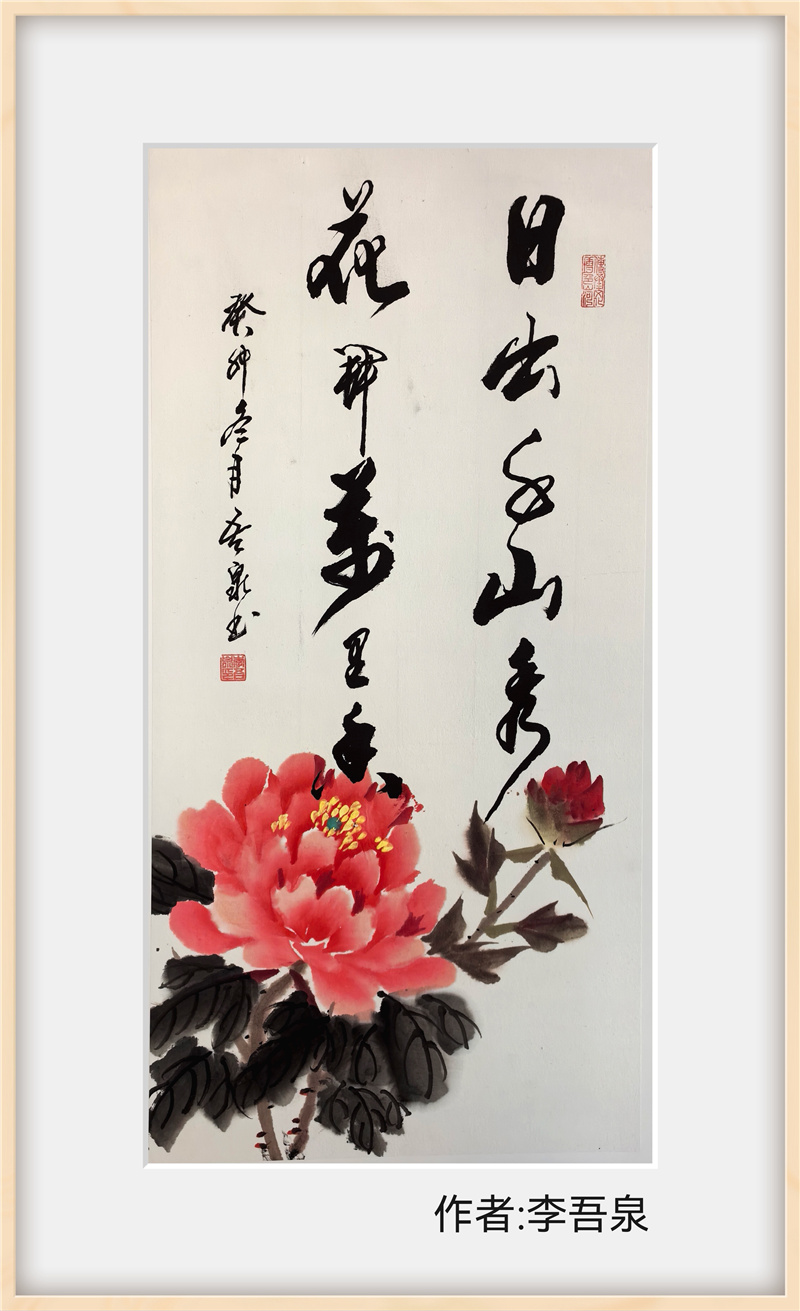 日出千山秀
花開萬里香
癸卯冬月吾泉书
作者:李吾泉